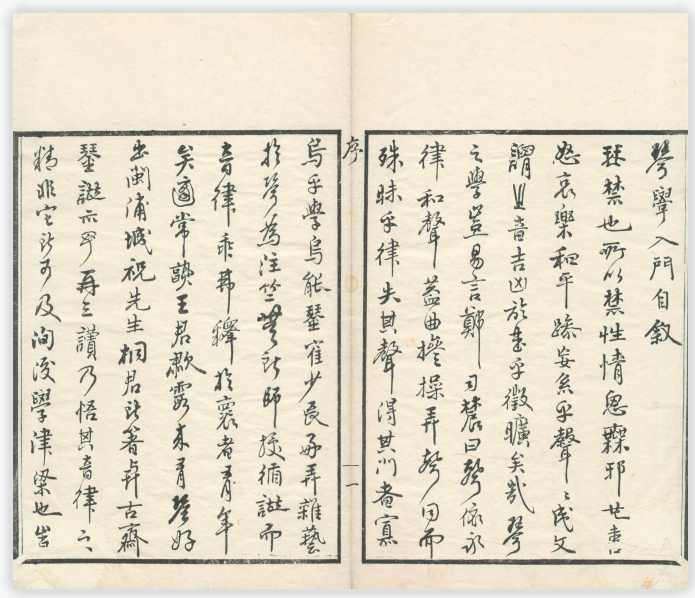 琴學入門自敘
琴禁也所以禁性情思無邪也喜
怒哀樂和平躁妄系乎聲〻成文
謂之音吉凶於是乎徵曠矣哉琴
之學豈易言歟曰琴依永
律和聲蓋曲操弄琴同而
殊昧乎律失其聲得其門者寡
序
一
焉乎學焉能琴寉少長好弄雜藝
於琴為注竺無所師授循譜而
音律乖於衷者有年
矣適常王君來有琴好
出閩浦城祝先生桐君所著與古齋
琴譜示予再三讀乃悟其音律之
精非它所可及洵後學津梁也